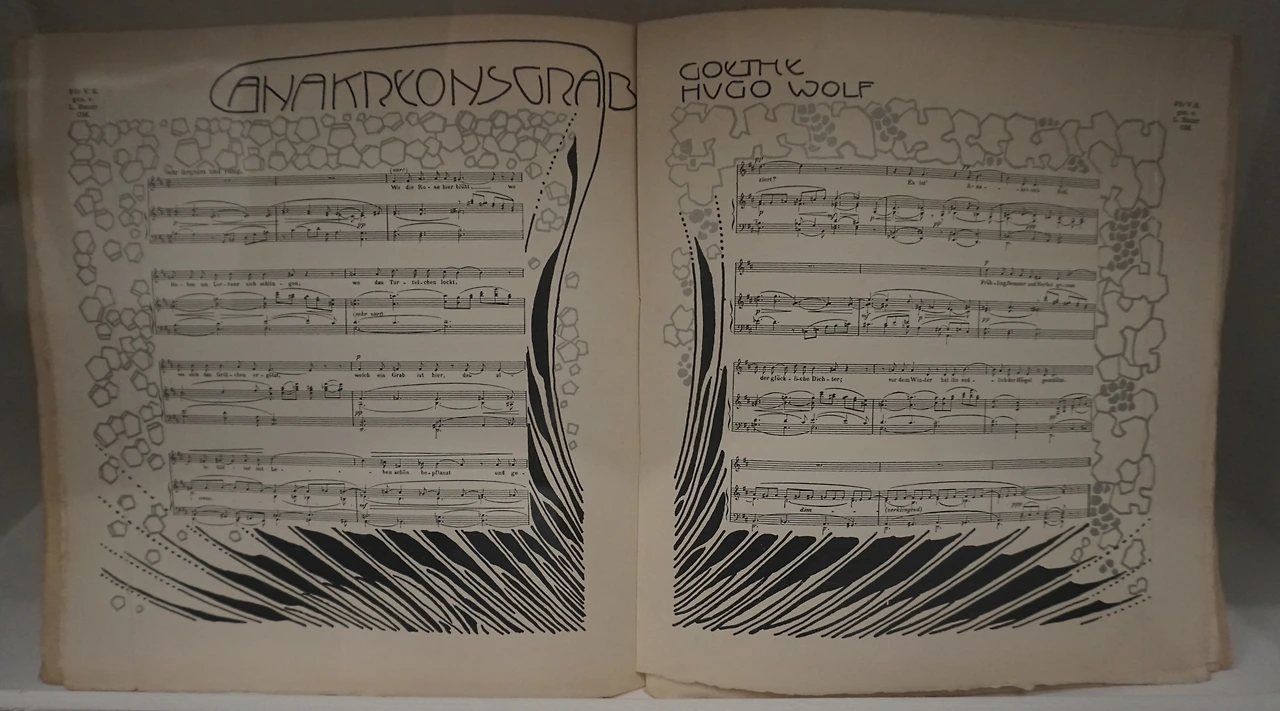 ANAKREONSGRAB
Für V. S.
gez. v.
L. Bauer
OM.
Sehr langsam und ruhig.
(zart)
Wo die Ro - se hier blüht, wo
pp
Re - ben um Lor - beer sich schlin - gen, wo das Tur - tel - chen lockt,
(sehr zart)
p
wo sich das Grill - chen er - götzt, welch ein Grab ist hier, das al
pp
mit Le - ben schön be - pflanzt und ge -
GOETHE
HUGO WOLF
Für V. S.
gez. v.
L. Bauer
OM.
pp
ziert? Es ist A - na - kre - ons Ruh.
p
p
Früh - ling, Sommer und Herbst ge - noss
pp
der glück - li - che Dich - ter; vor dem Win - ter hat ihn end - lich der Hügel geschützt.
dim
(verklingend)
ppp